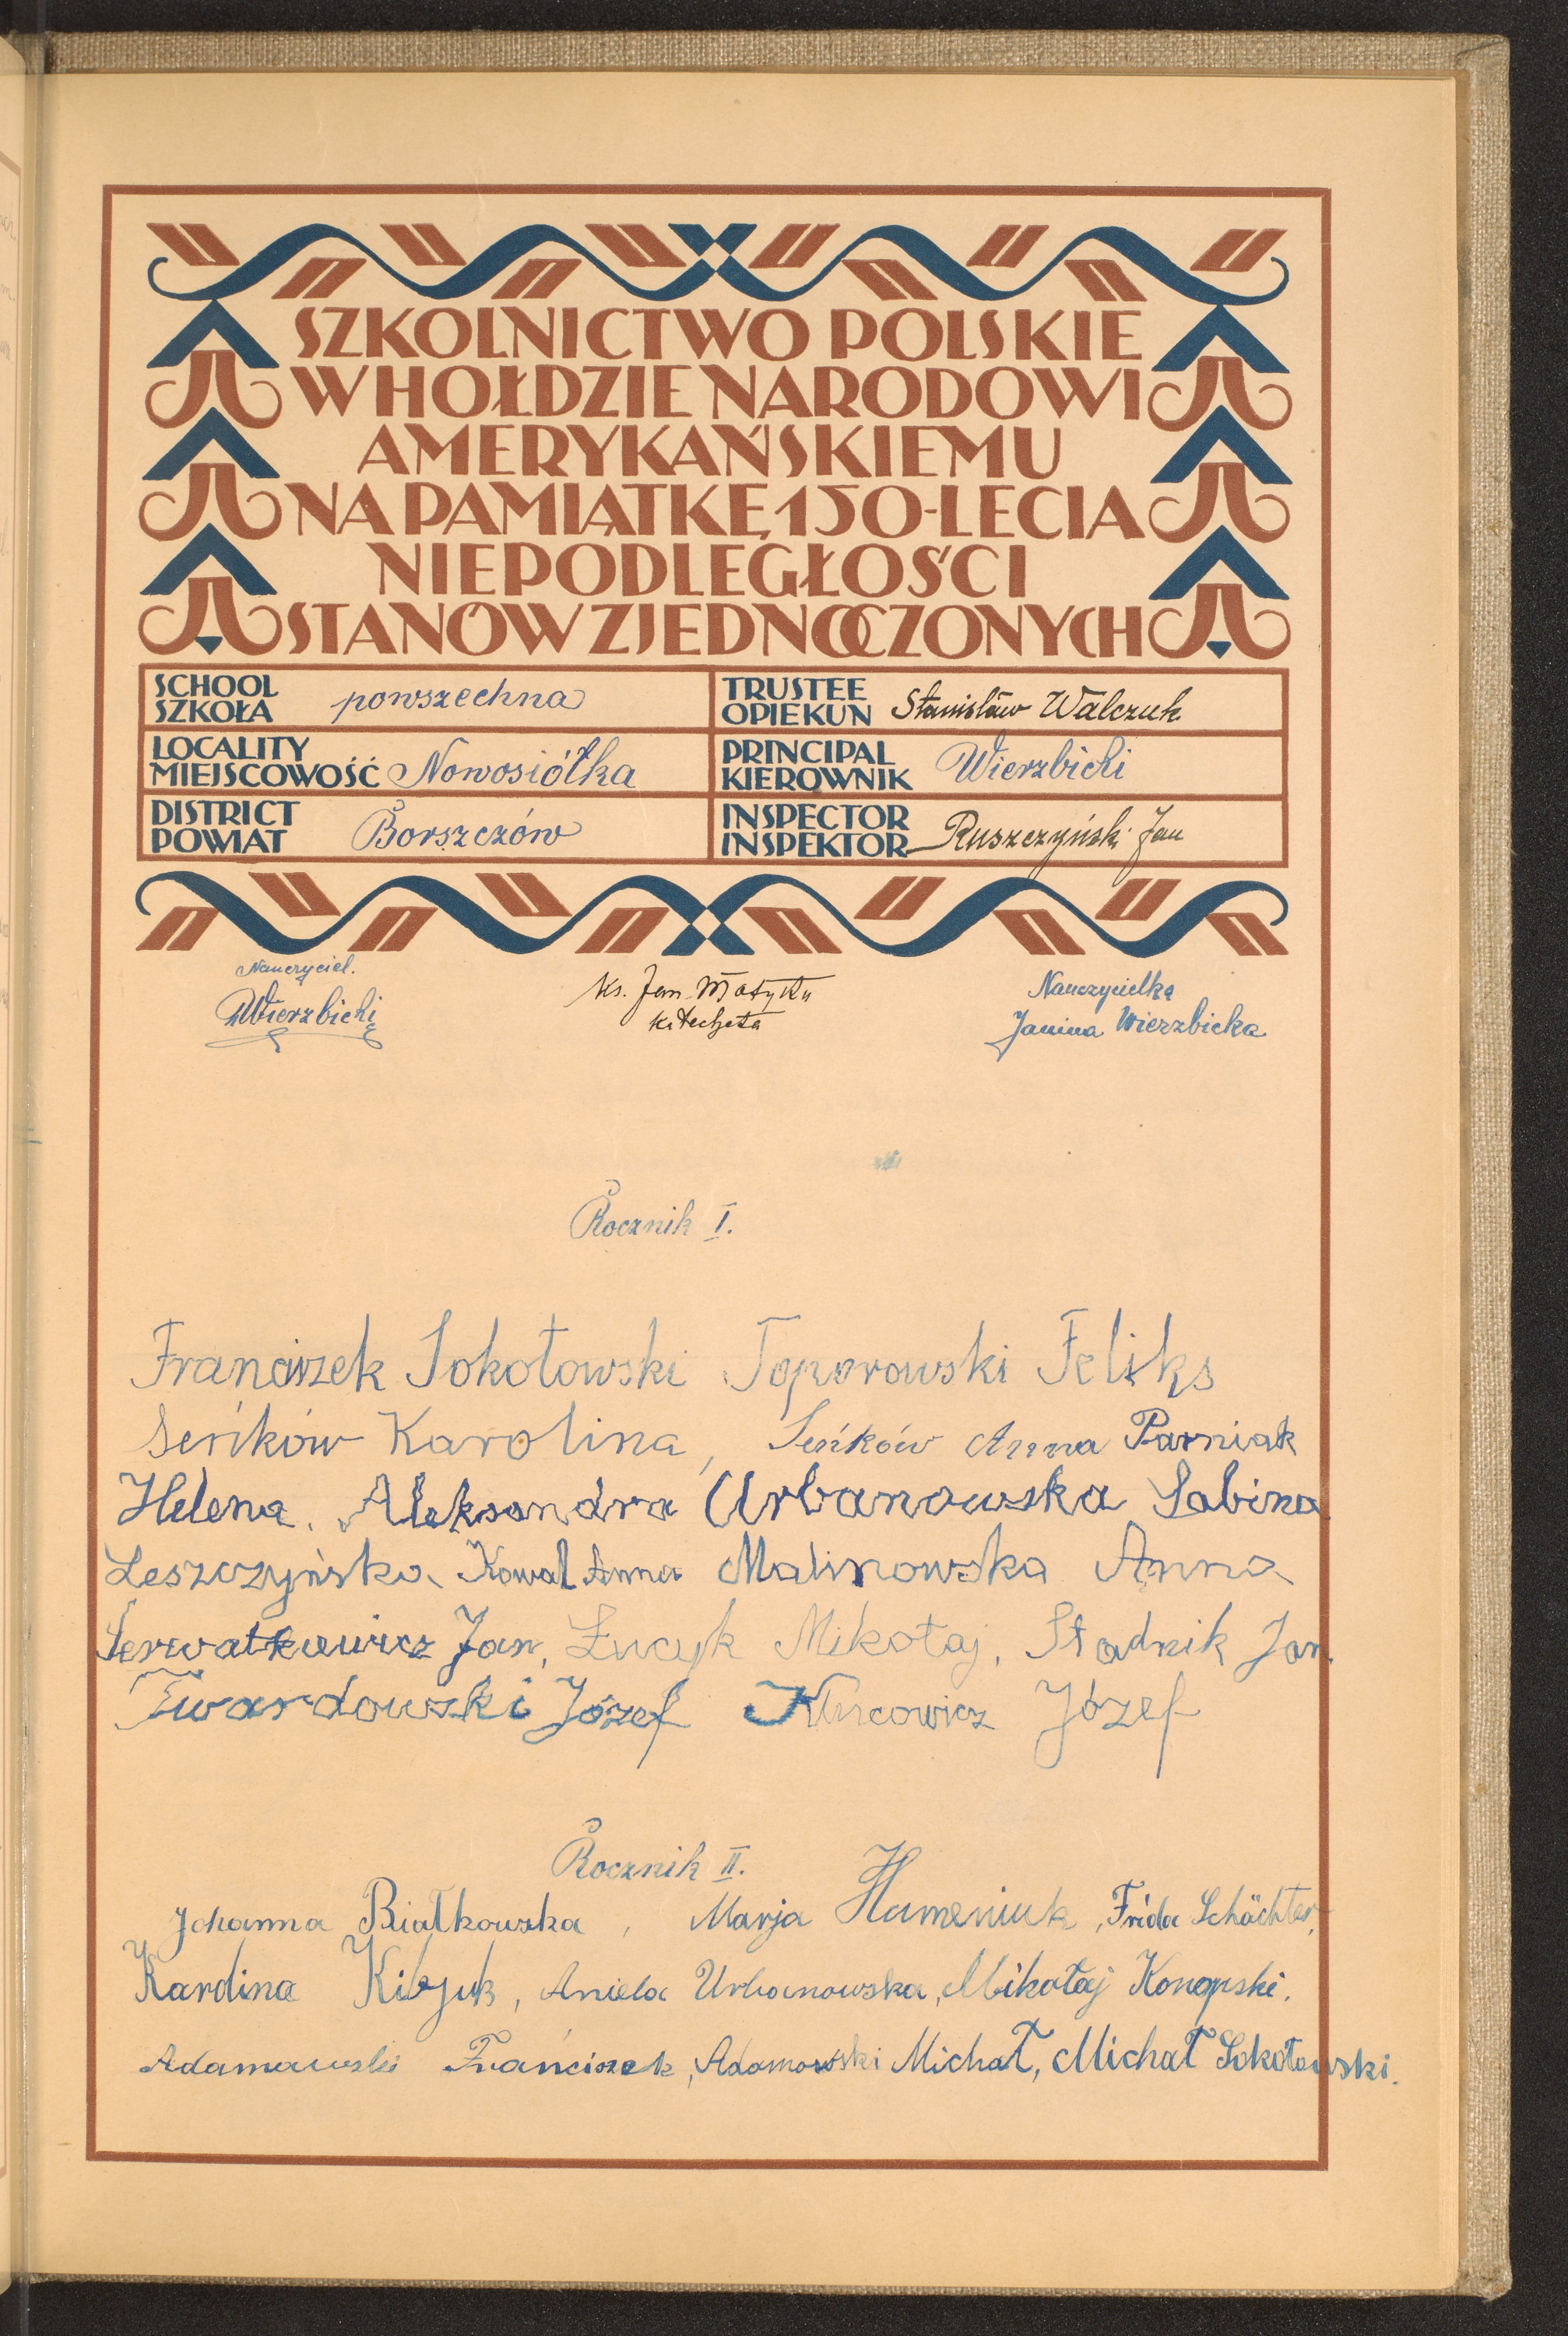 SZKOLNICTWO POLSKIE
W HOŁDZIE NARODOWI
AMERYKAŃSKIEMU
NA PAMIĄTKĘ 150-LECIA
NIEPODLEGŁOŚCI
STANÓW ZJEDNOCZONYCH
SCHOOL
SZKOŁA powszechna
TRUSTEE
OPIEKUN Stanisław Walczuk
LOCALITY
MIEJSCOWOŚĆ Nowosiółka
PRINCIPAL
KIEROWNIK Wierzbicki
DISTRICT
POWIAT Borszczów
INSPECTOR
INSPEKTOR Ruszczyński Jan
Nauczyciel.
Wierzbicki
Ks. Jan Matyka
Katecheta
Nauczycielka
Janina Wierzbicka
Rocznik I.
Franciszek Sokołowski Toporowski Feliks
Seńków Karolina, Seńków Anna Parniak
Helena. Aleksandra Urbanowska Sabina
Leszczyńska Kowal Anna Malinowska Anna
Jan, Łucyk Mikołaj, Stadnik Jan
Twardowski Józef Józef
Rocznik II.
Johanna Białkowska, Marja Humeniuk, Frida Schächter,
Karolina Aniela Urbanowska, Mikołaj Konopski.
Adamowski Franciszek, Adamowski Michał, Michał Sokołowski.